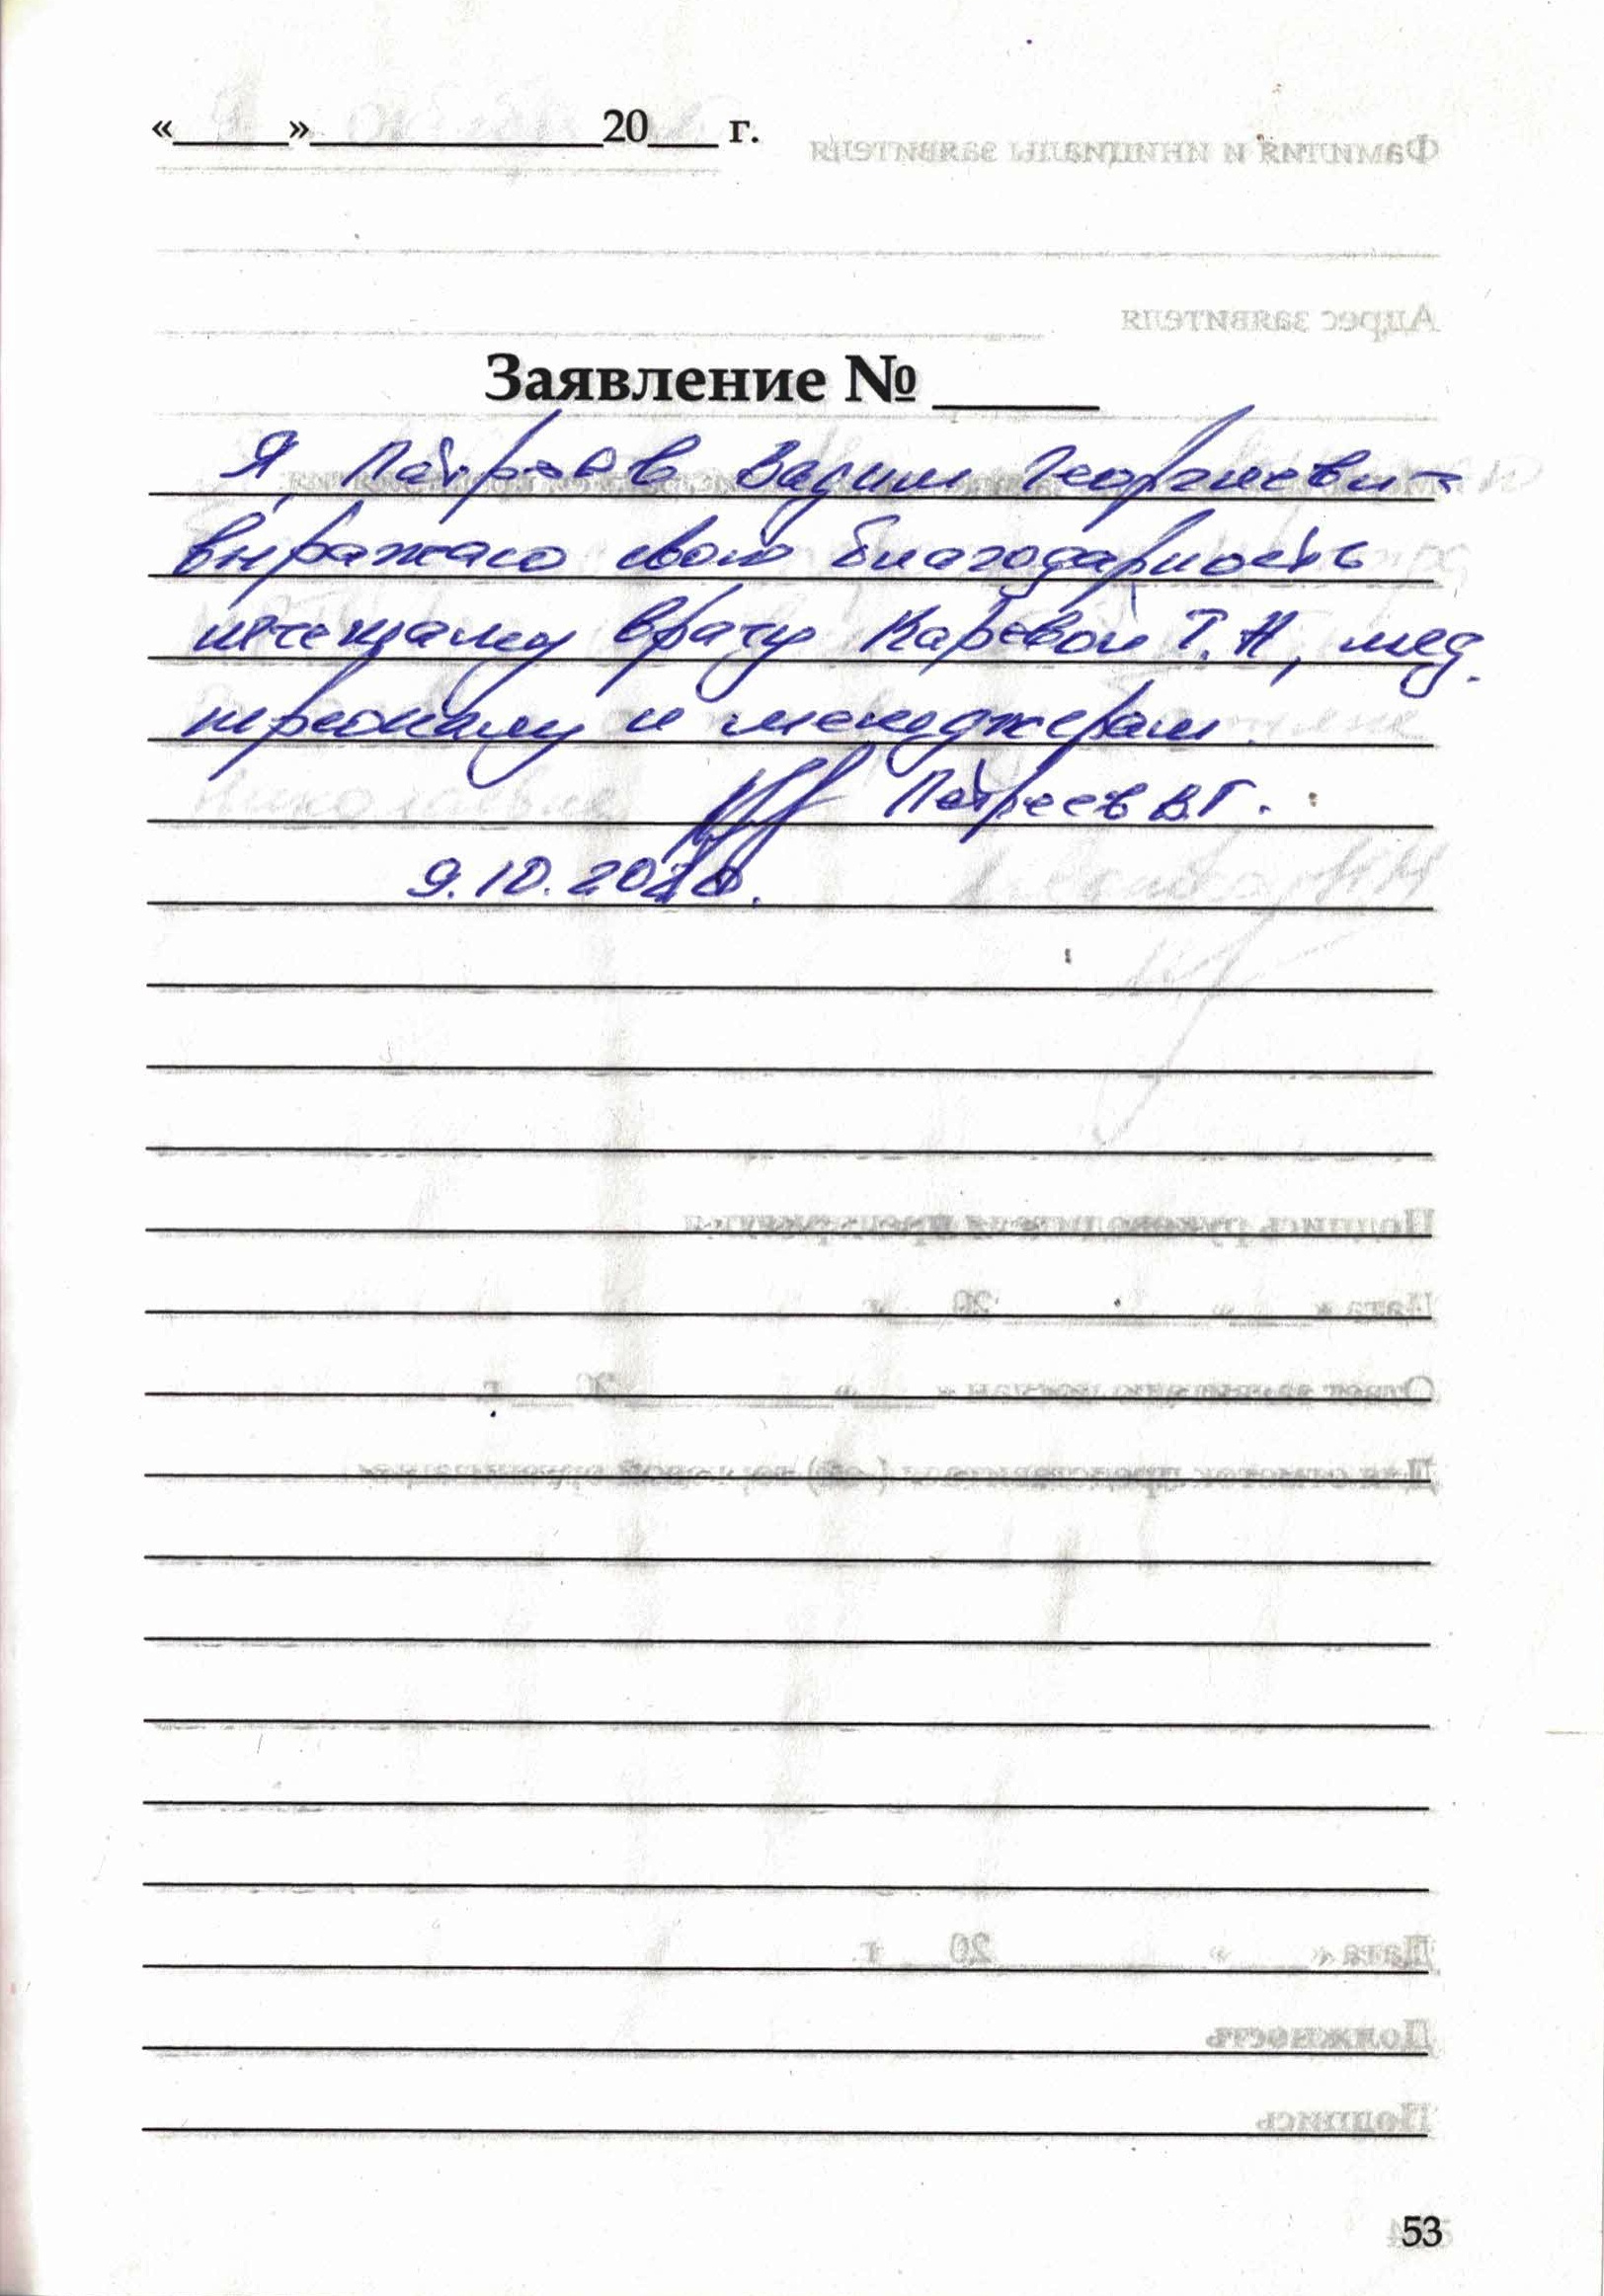 «_____»_____________20___ г.
Заявление № ______
Я, Патреев Вадим Георгиевич
выражаю свою благодарность
лечещаму врачу Каревой Т. Н, мед.
персоналу и менеджерам.
Патреев В.Г.
9.10.2020.
53